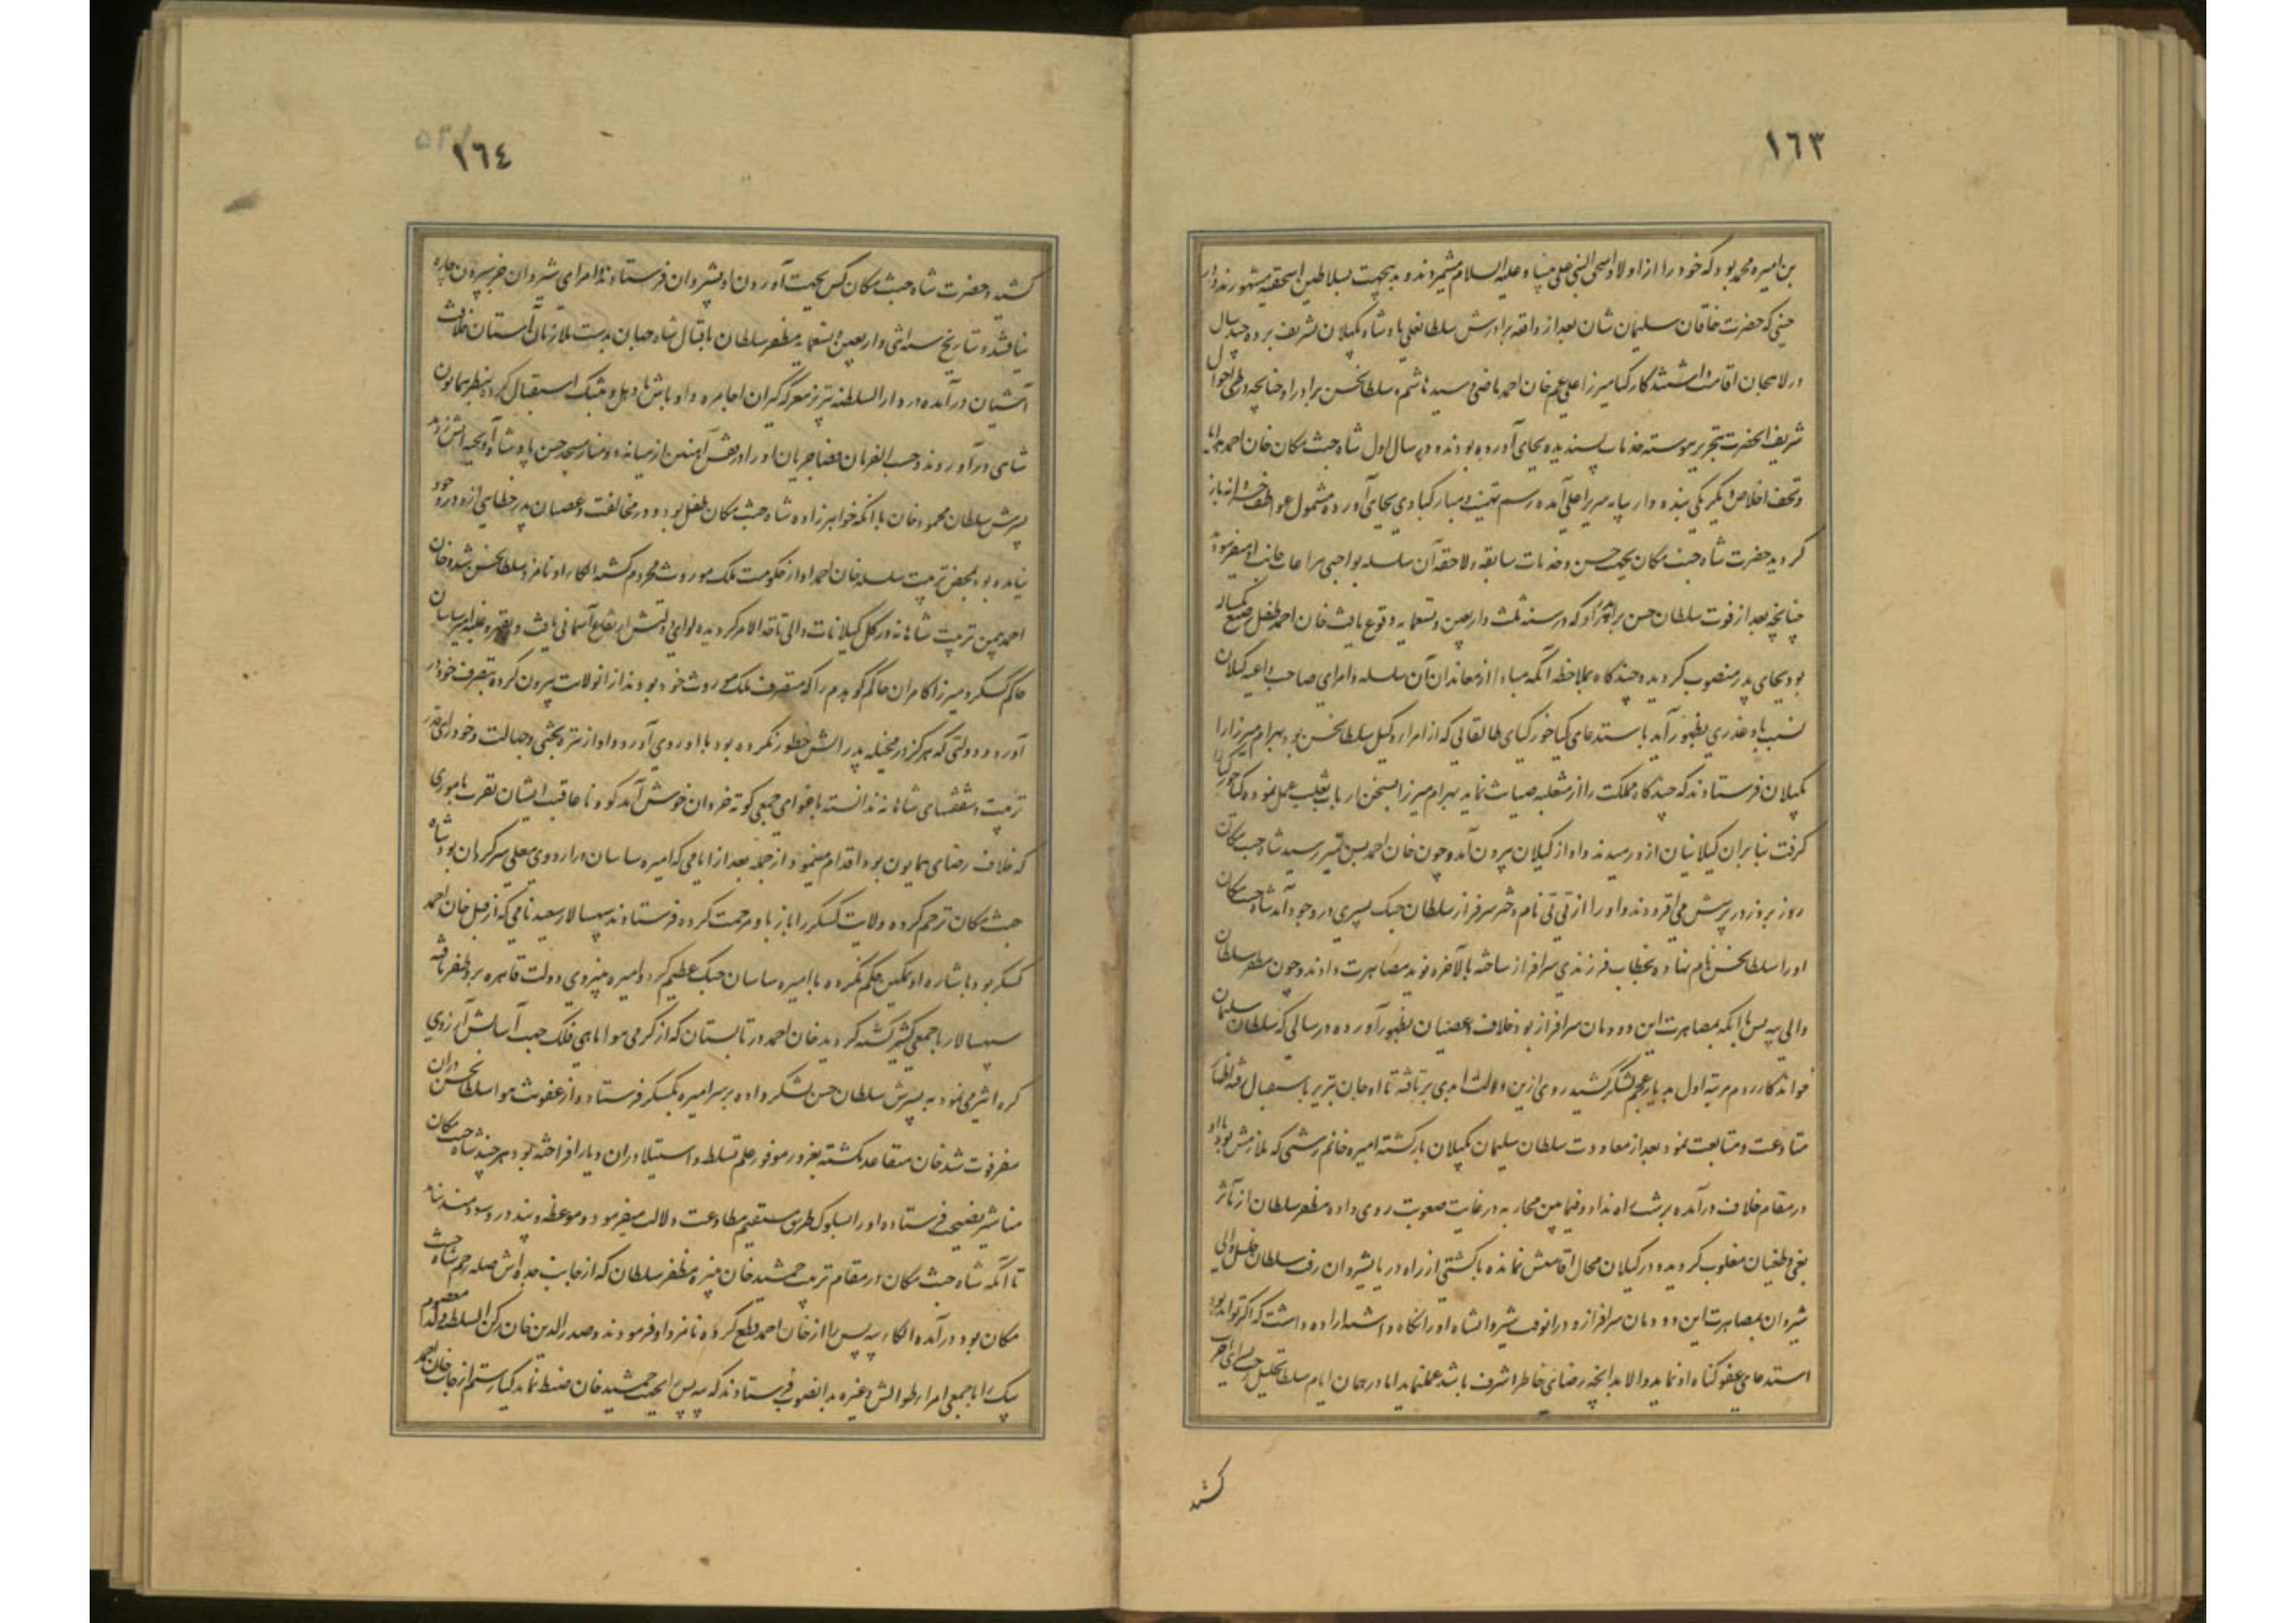 ١٦٣
بن امیره محمد بود که خود را از اولاد اسحق النبی علی نبینا و علیه السلام میشمردند و بدینجهت بسلاطین اسحقیه مشهورند در
حینی که حضرت خاقان سلیمان شان بعد از واقعه برادرش سلطانعلی پادشاه بگیلان تشریف برده چند سال
در لاهجان اقامت داشتند کارکیا میرزا علی عم خان احمد ماضی و سید هاشم و سلطانحسن برادر او چنانچه در طی احوال
شریف انحضرت بتحریر پیوسته خدمات پسندیده بجای آورده بودند و در سال اول شاه جنت مکان خان احمد با هدایا
و تحف اخلاص یکرنگی بنده وار بپایه سریر اعلی آمده رسم تهنیت و مبارکبادی بجای آورده مشمول عواطف خسروانه باز
کردید حضرت شاه جنت مکان بجهت حسن و خدمات سابقه و لاحقه آن سلسله بواجبی مراعات جانب او میفرمود
چنانچه بعد از فوت سلطان حسن برادر او که در سنه ثلث و اربعین و تسعمایه وقوع یافت خان احمد طفل رضیع یکساله
بود بجای پدر منصوب کردیده چند کاه بملاحظه آنکه مبادا از معاندان آن سلسله و امرای صاحب داعیه کیلان
نسبت باو غدری بظهور آید باستدعای کیا خور کیای طالقانی که از امراء و وکیل سلطانحسن بود بهرام میرزا را
بکیلان فرستادند که چند کاه مملکت را از متغلبه صیانت نماید بهرام میرزا بسخن ارباب تغلب عمل نموده کیا خور کیا را
کرفت بنا بران کیلانیان ازو رمیدند و او از کیلان بیرون آمد و چون خان احمد بسن تمییز رسید شاه جنت مکان
روز بروز در پرسش می افزودند و او را از تی تی نام دختر سرفراز سلطان چپک پسری در وجود آمد شاه جنت مکان
او را سلطانحسن نام نهاده بخطاب فرزندی سرافراز ساخته بالآخره نوید مصاهرت دادند و چون مظفر سلطان
والی بیه پس با آنکه بمصاهرت این دودمان سرافراز بود خلاف و عصیان بظهور آورده در سالی که سلطان سلیمان
خواندکار روم مرتبه اول بدیار عجم لشکر کشید روی ازین دولت ابدی برتافته تا اوجان تبریز باستقبال رفته اظهار
متادعت و متابعت نمود بعد از معاودت سلطان سلیمان بکیلان بازکشته امیره حاتم رشتی که ملازمش بود با او
در مقام خلاف درآمده برشت راه نداد و فیما بین محاربه در غایت صعوبت روی داده مظفر سلطان از تاثر
بغی و طغیان مغلوب کردیده در کیلان محال اقامتش نمانده با کشتی از راه دریا بشیروان رفت سلطان خلیل والی
شیروان بمصاهرت این دودمان سرافراز و درانوقت شیروانشاه او را نکاه داشته اراده داشت که اکر تواند بود
استدعای عفو کناه او نماید و الا بدانچه رضای خاطر اشرف باشد عمل نماید اما در همان ایام سلطان خلیل
کشید
١٦٤
کشید و حضرت شاه جنت مکان کس بجهت آوردن او بشیروان فرستادند و امرای شیروان جز سپردن چاره
نیافتند و بتاریخ سنه اثنی و اربعین و تسعمایه مظفر سلطان باقبال شاه جهان بدست ملازمان آستان خلافت
آشیان درآمده در دار السلطنه تبریز معرکه کیران اجامره و اوباش با دهل و تنبک استقبال کرده بنظر همایون
شاهی درآوردند و حسب الفرمان قضا جریان او را در قفس آهنین از میانه دو منار مسجد حسن پادشاه آویخته آتش زدند
پسرش سلطان محمود خان با آنکه خواهرزاده شاه جنت مکان طفل بود و در مخالفت و عصیان پدر خطایی ازو در وجود
نیامده بود بمحض تربیت سلسله خان احمد او از حکومت ملک موروث محروم کشته الکا را و نامزد سلطانحسن شد و خان
احمد بیمن تربیت شاهانه در کل کیلانات والی نافذ الامر کردیده لوای دولتش ارتفاع آسمانی یافت و بقهر و غلبه امیره ساسان
حاکم کسکر و میرزا کامران حاکم کوهدم را که متصرف ملک موروث خود بودند از انولایت بیرون کرده بتصرف خود در
آورد و دولتی که هرکز در مخیله پدرانش خطور نکرده بود باو روی آورد و او از تیره بختی و جهالت و خودرایی قدر
تربیت و شفقتهای شاهانه ندانسته باغوای جمعی کوته خردان خوش آمد کو و ناعاقبت اندیشان تقرب بامری
که خلاف رضای همایون بود اقدام مینمود از جمله بعد از ایامی که امیره ساسان در اردوی معلی سرکردان بود شاه
جنت مکان ترحم کرده ولایت کسکر را باز باو مرحمت کرده فرستادند سپهسالار سعید نامی که از قبل خان احمد
کسکر بود باشاره او تمکین حکم نکرده با امیره ساسان جنک عظیم کرد و امیره بنیروی دولت قاهره برو ظفر یافته
سپهسالار با جمعی کثیر کشته کردید خان احمد در تابستان که از کرمی هوا ماهی فلک جهت آسایش آرزوی
کره اثیر می نمود به پسرش سلطان حسن لشکر داده بر سر امیره بکسکر فرستاد و از عفونت هوا سلطانحسن دران
سفر فوت شد خان متقاعد نکشته بغرور موفور علم تسلط و استیلا دران دیار افراخته بود هر چند شاه جنت مکان
مناشیر نصیحت فرستاده او را بسلوک طریق مستقیم مطاوعت دلالت میفرمود و موعظه و پند درو سودمند نیامد
تا آنکه شاه جنت مکان در مقام تربیت جمشید خان نبیره مظفر سلطان که از جانب جده اش صله رحم شاه جنت
مکان بود درآمده الکاء بیه پس را از خان احمد قطع کرده نامزد او فرمودند و صدر الدین خان رکن السلطنه و معصوم
بیک را با جمعی امراء طوالش و غیره بدانصوب فرستادند که بیه پس را بجهت جمشید خان ضبط نماید کیا رستم از جانب خان احمد